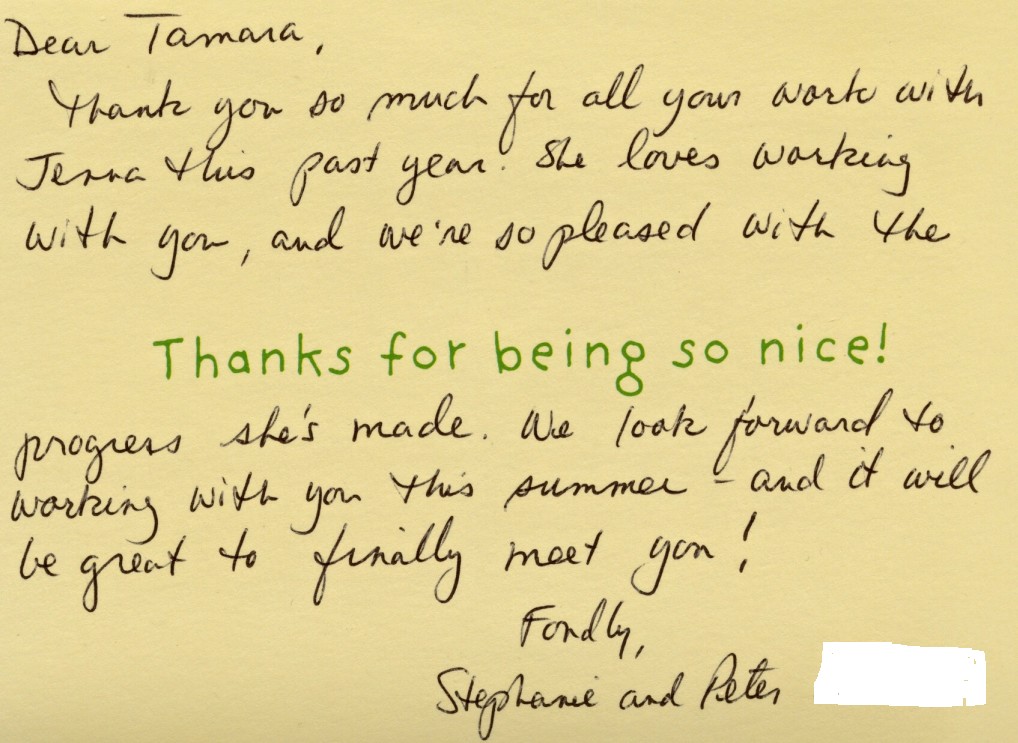 Dear Tamara,
Thank you so much for all your work with
Jenna this past year. She loves working
with you, and we're so pleased with the
Thanks for being so nice!
progress she's made. We look forward to
working with you this summer - and it will
be great to finally meet you!
Fondly,
Stephanie and Peter